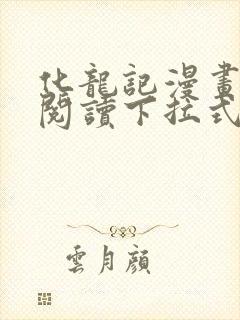 化龍記漫畫
閱讀下拉式
雲月顔